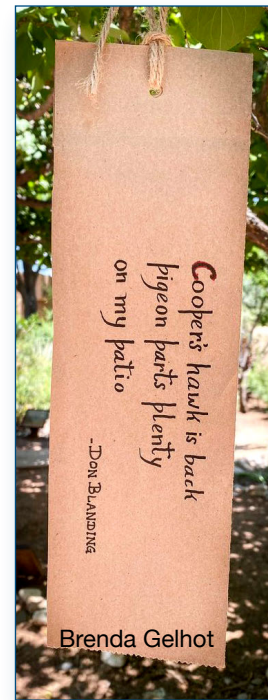 Cooper's hawk is back
pigeon parts plenty
on my patio
-Don Blanding
Brenda Gelhot